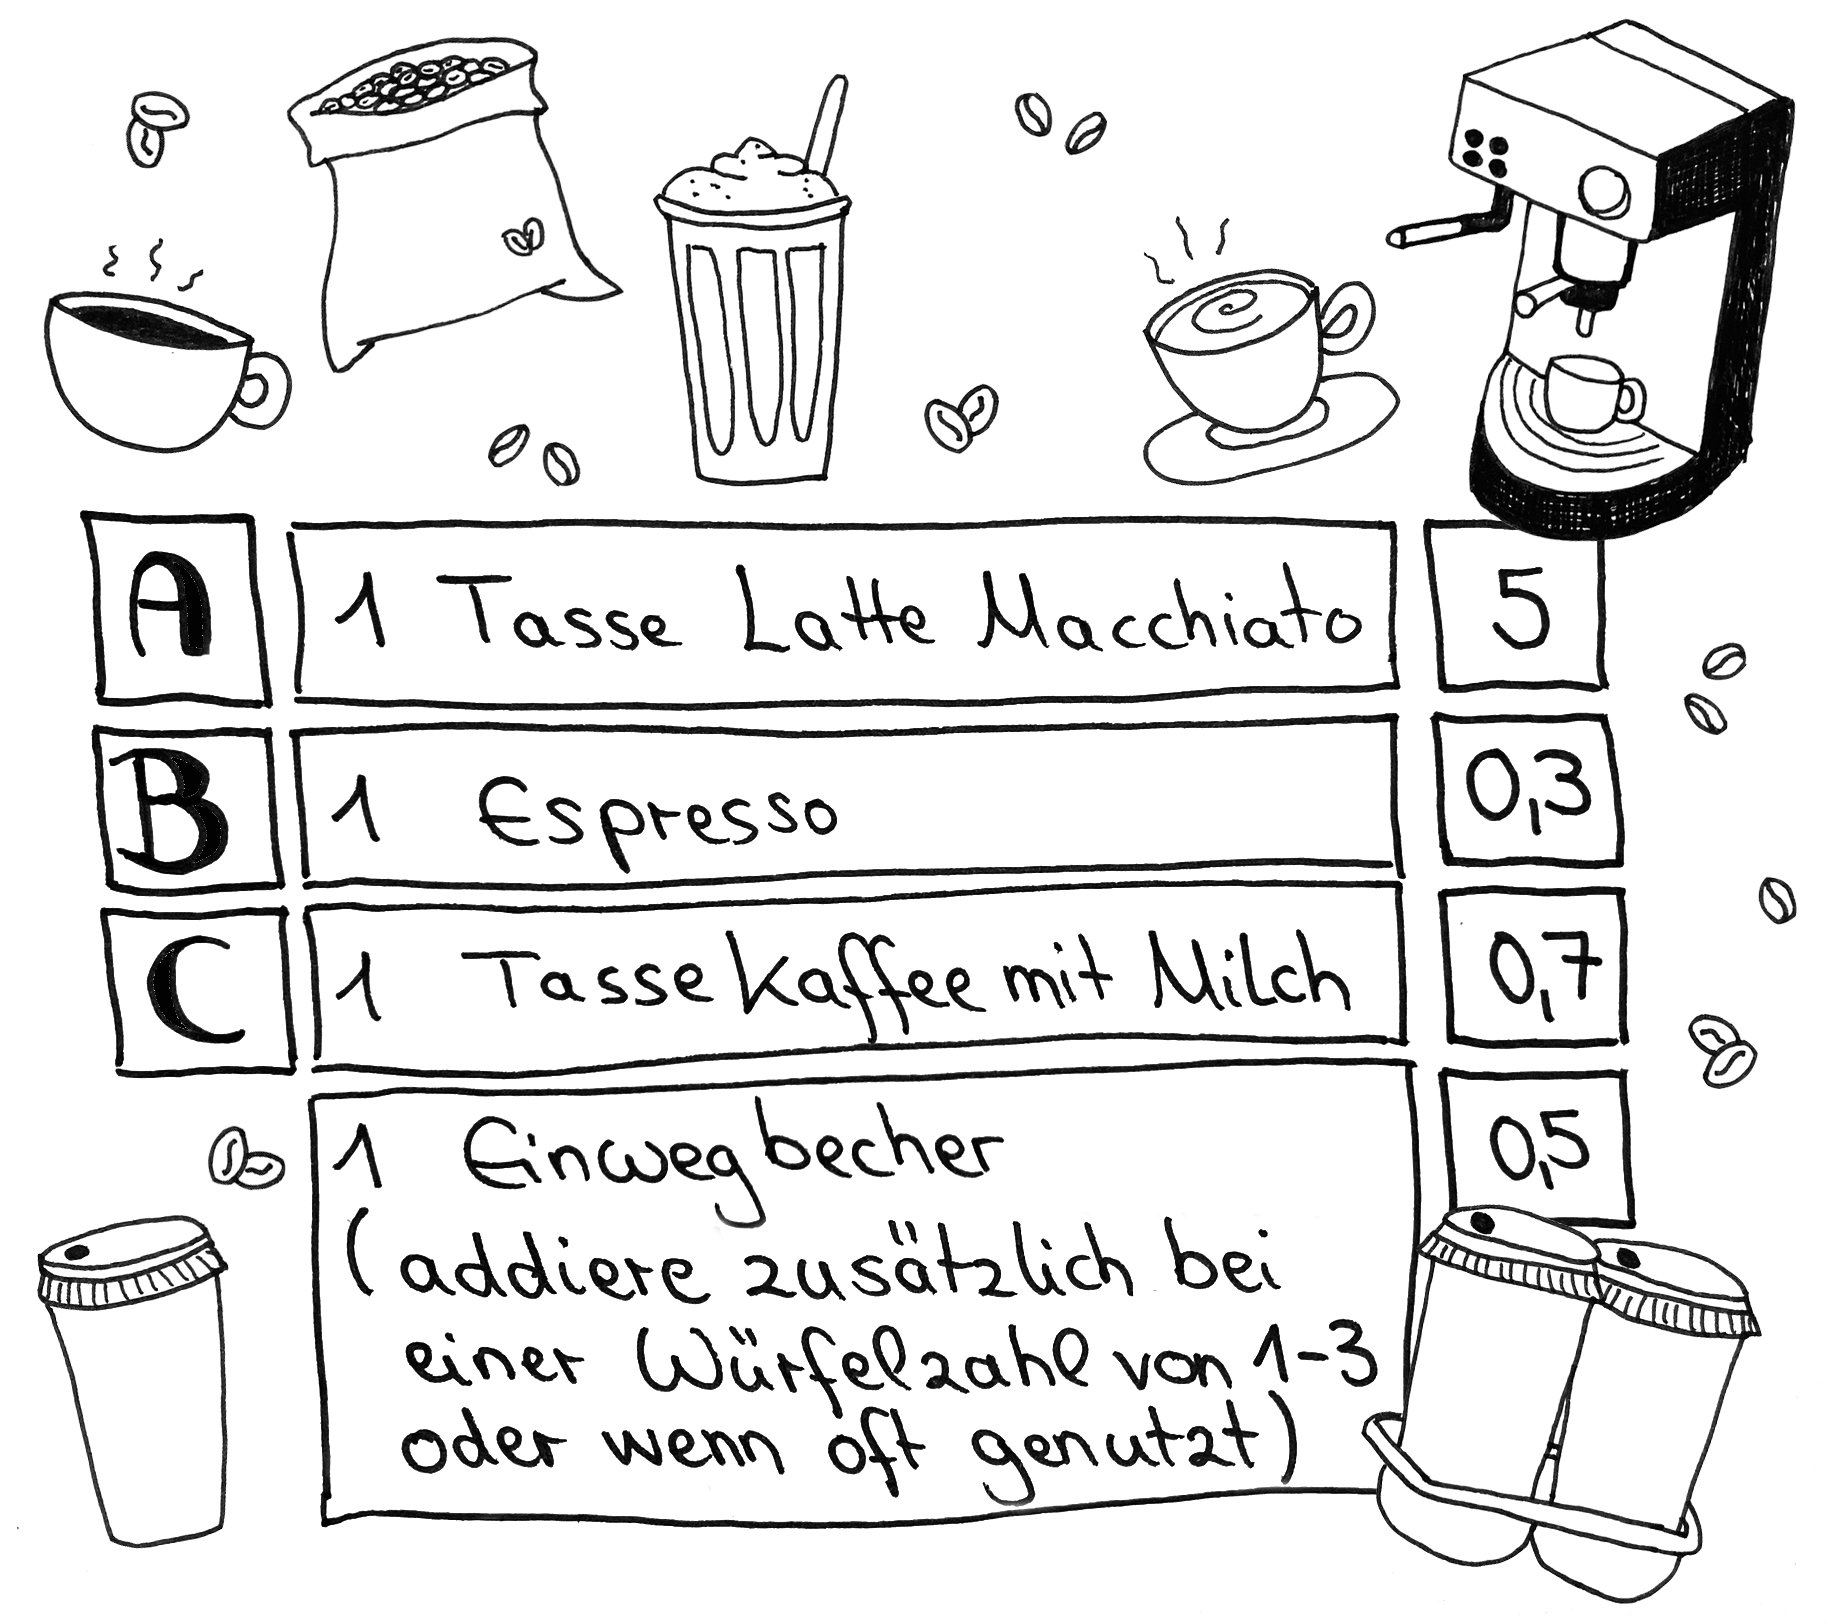 A 1 Tasse Latte Macchiato 5
B 1 Espresso 0,3
C 1 Tasse Kaffee mit Milch 0,7
1 Einwegbecher 0,5
(addiere zusätzlich bei
einer Würfelzahl von 1-3
oder wenn oft genutzt)